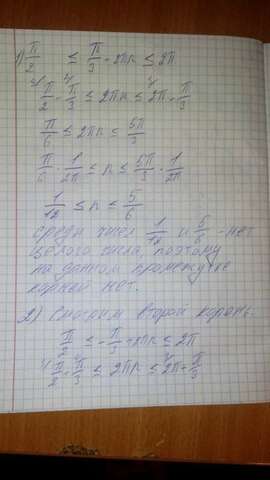 1) π/2 ≤ π/3 + 2πn ≤ 2π
π/2 - π/3 ≤ 2πn ≤ 2π - π/3
π/6 ≤ 2πn ≤ 5π/3
π/6 · 1/2π ≤ n ≤ 5π/3 · 1/2π
1/12 ≤ n ≤ 5/6
среди чисел 1/12 и 5/6 - нет
целого числа, поэтому
на данном промежутке
корней нет.
2) Смотрим второй корень:
π/2 ≤ -π/3 + 2πn ≤ 2π
π/2 + π/3 ≤ 2πn ≤ 2π + π/3